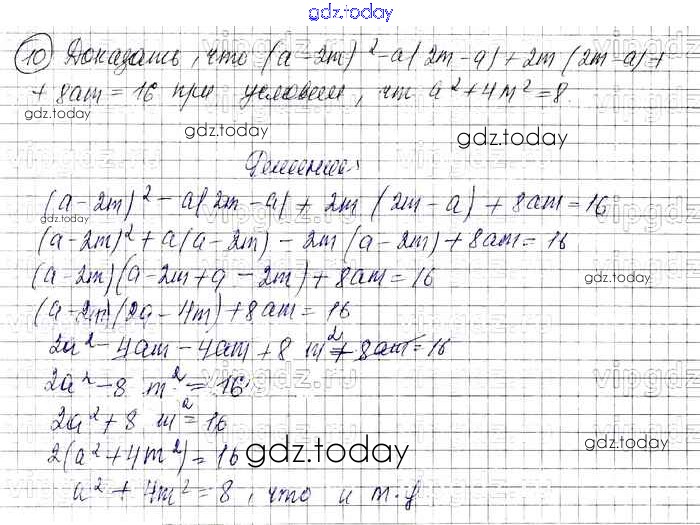 gdz.today
10 Доказать, что (a - 2m)² - a(2m - a) + 2m (2m - a) +
+ 8am = 16 при условии, чт a² + 4m² = 8.
gdz.today
gdz.today
gdz.today
Решение:
(a - 2m)² - a(2m - a) + 2m (2m - a) + 8am = 16
gdz.today
(a - 2m)² + a(a - 2m) - 2m (a - 2m) + 8am = 16
(a - 2m)(a - 2m + a - 2m) + 8am = 16
gdz.today
(a - 2m)(2a - 4m) + 8am = 16
2a² - 4am - 4am + 8 m² + 8am = 16
2a² - 8 m² = 16
2a² + 8 m² = 16
2(a² + 4m²) = 16
gdz.today
gdz.today
a² + 4m² = 8, что и т.д
vipgdz.ru